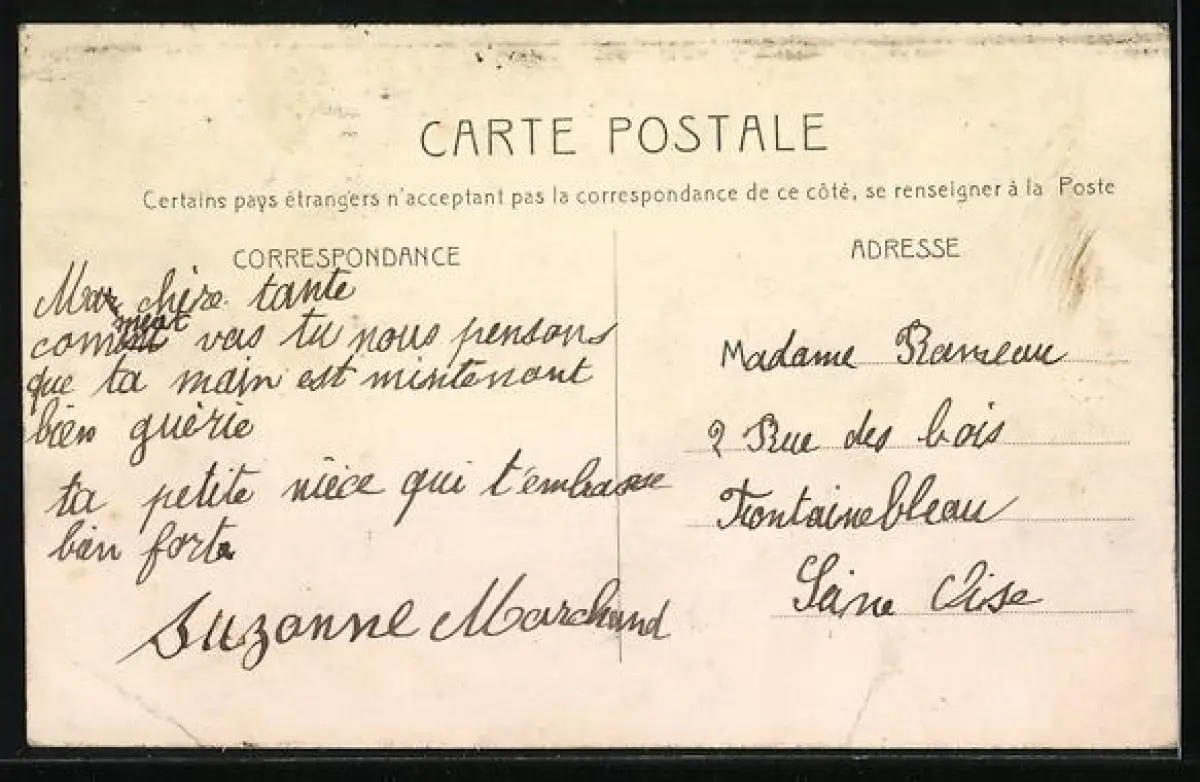 CARTE POSTALE
Certains pays étrangers n'acceptant pas la correspondance de ce côté, se renseigner à la Poste
CORRESPONDANCE
Ma chère tante
comment vas tu nous pensons
que ta main est mintenant
bien guèrie
ta petite nièce qui t'embrasse
bien forte
Suzanne Marchand
ADRESSE
Madame Rameau
2 Rue des bois
Fontainebleau
Seine Oise